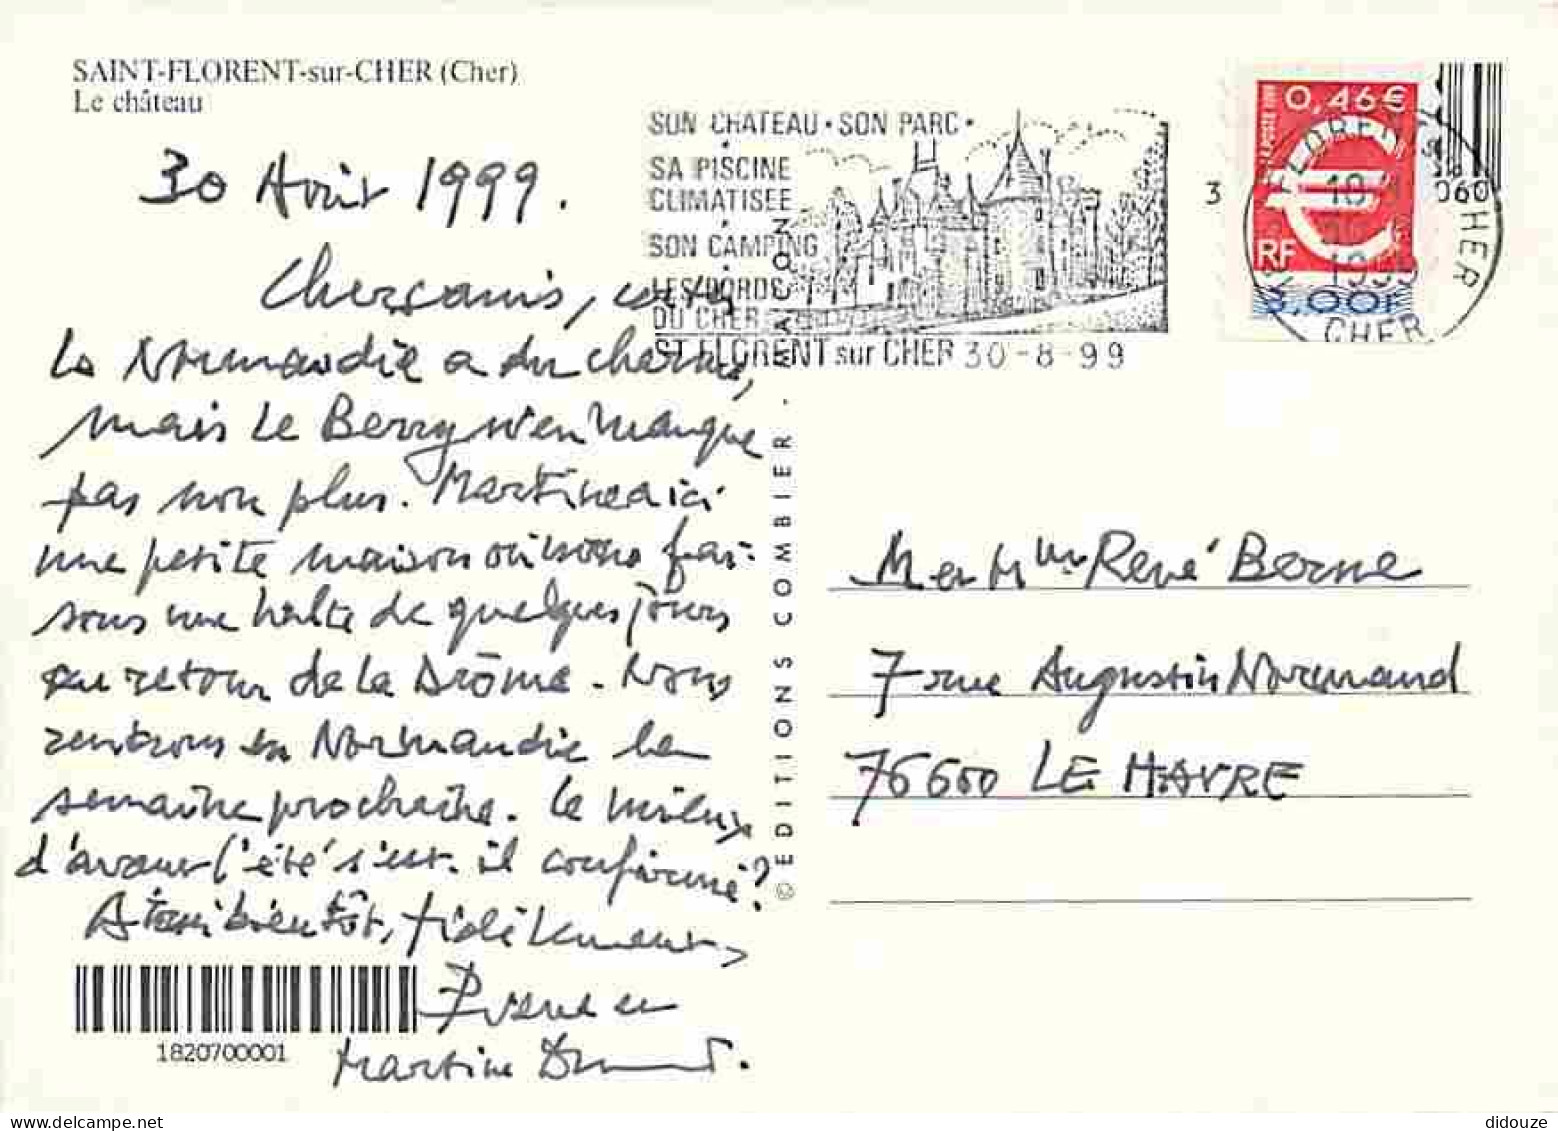 SAINT-FLORENT-sur-CHER (Cher)
Le château
30 Août 1999.
Chers amis, certes
la Normandie a du charme,
mais le Berry n'en manque
pas non plus. Martine a ici
une petite maison où nous fai-
sons une halte de quelques jours
au retour de la Drôme. Nous
rentrons en Normandie la
semaine prochaine. Le mieux
d'avant l'été s'est-il confirmé?
A très bientôt, fidèlement,
Pierre et
Martine
1820700001
SON CHATEAU • SON PARC •
SA PISCINE
CLIMATISEE
SON CAMPING
LES BORDS
DU CHER
ST FLORENT sur CHER 30-8-99
3
0,46€
LA POSTE 1999
RF
3,00F
FLORENT S
CHER
18
1999
CHER
060
© EDITIONS COMBIER - MACON
M et Mme René Berne
7 rue Augustin Normand
76600 LE HAVRE
didouze